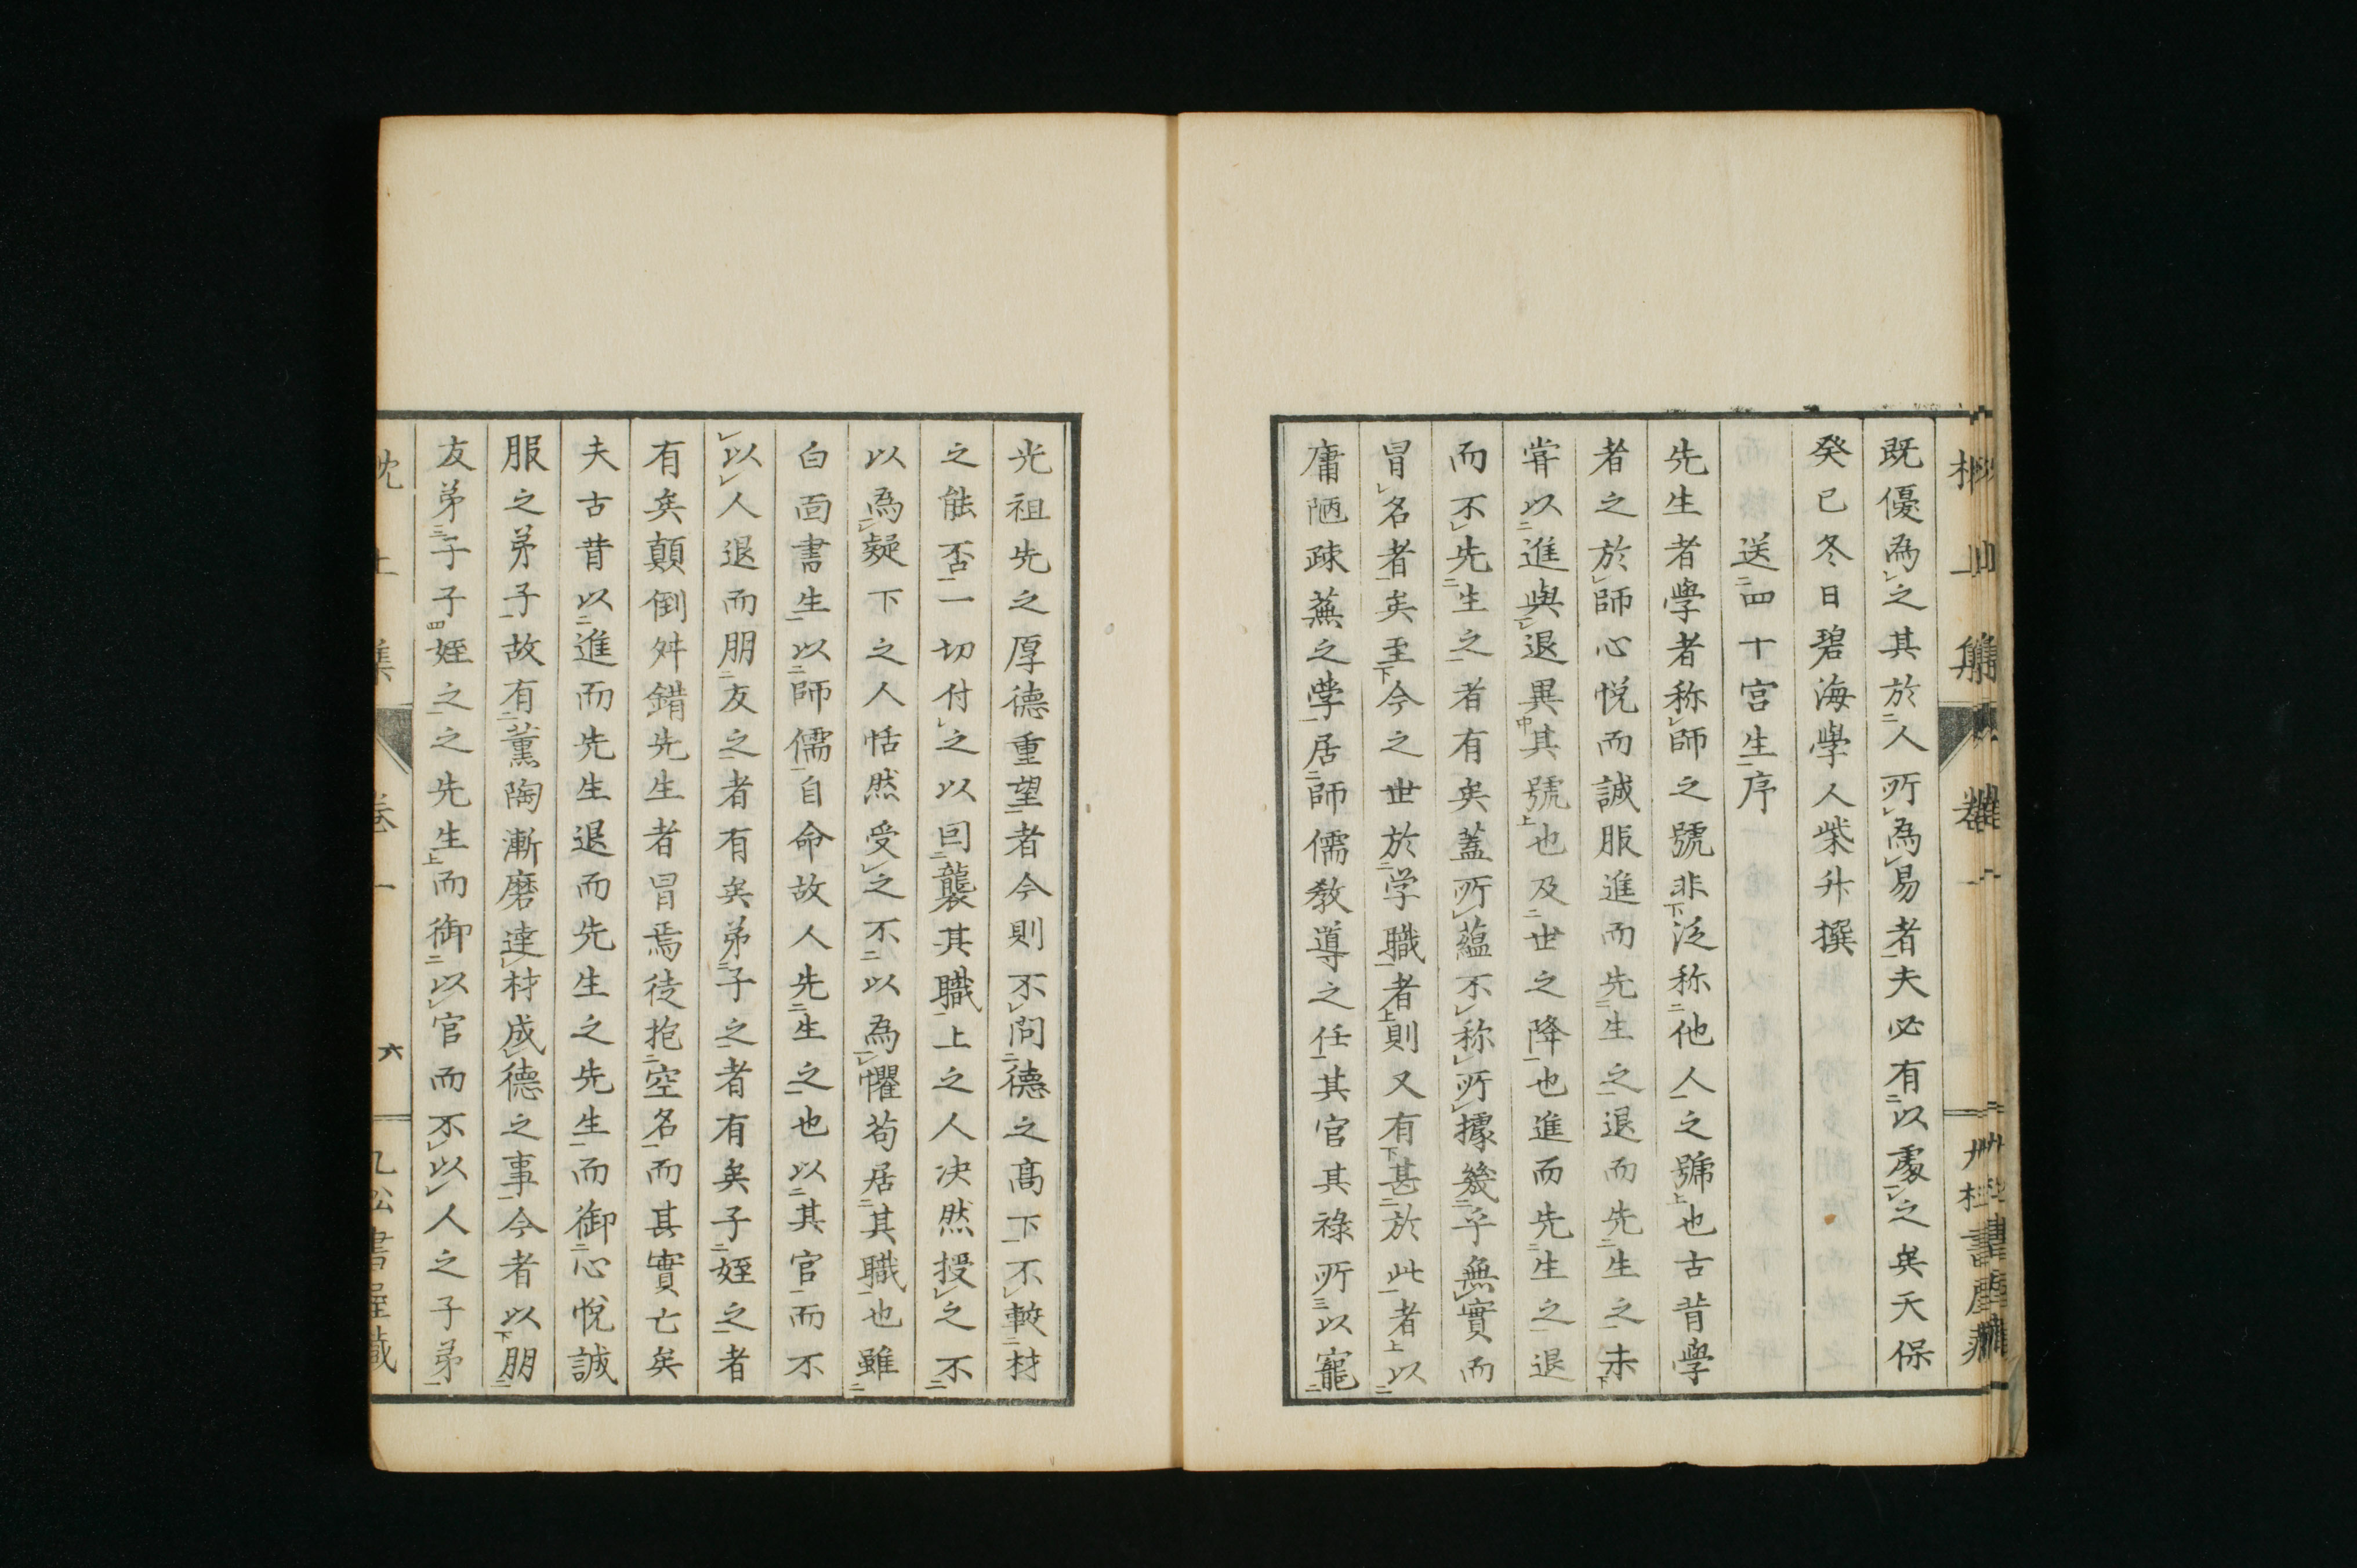 既優為之其於人所為易者夫必有以處之矣天保
癸巳冬日碧海學人柴升撰
送四十宮生序
先生者學者称師之號非泛称他人之號也古昔學
者之於師心悦而誠服進而先生之退而先生之未
甞以進與退異其號也及世之降也進而先生之退
而不先生之者有矣蓋所蘊不称所據幾乎無實而
冒名者矣至今之世於学職者則又有甚於此者以
庸陋踈蕪之學居師儒教導之任其官其祿所以寵
光祖先之厚德重望者今則不問德之高下不較材
之能否一切付之以囘襲其職上之人决然授之不
以為疑下之人恬然受之不以為懼苟居其職也雖
白面書生以師儒自命故人先生之也以其官而不
以人退而朋友之者有矣弟子之者有矣子姪之者
有矣顛倒舛錯先生者冒焉徒抱空名而其實亡矣
夫古昔以進而先生退而先生之先生而御心悦誠
服之弟子故有薫陶漸磨達材成德之事今者以朋
友弟子子姪之之先生而御以官而不以人之子弟
卷一
六